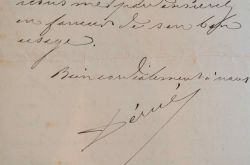 en faveur de son bon
usage.
Bien cordialement à vous
Hervé